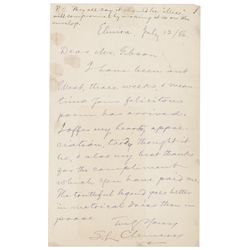 P.S. They all say it should be "Miss." I
will compromise by making it so on the
envelop.
Elmira, July 12/86
Dear Mr. Gibson
I have been out
West, three weeks, & mean
time your felicitous
poem has arrived.
I offer my hearty appre-
ciation, today thought it
is, & also my best thanks
for the compliment
which you have paid me.
The truthful legend goes better
in metrical dress than in
prose.
Truly Yours
S. L. Clemens